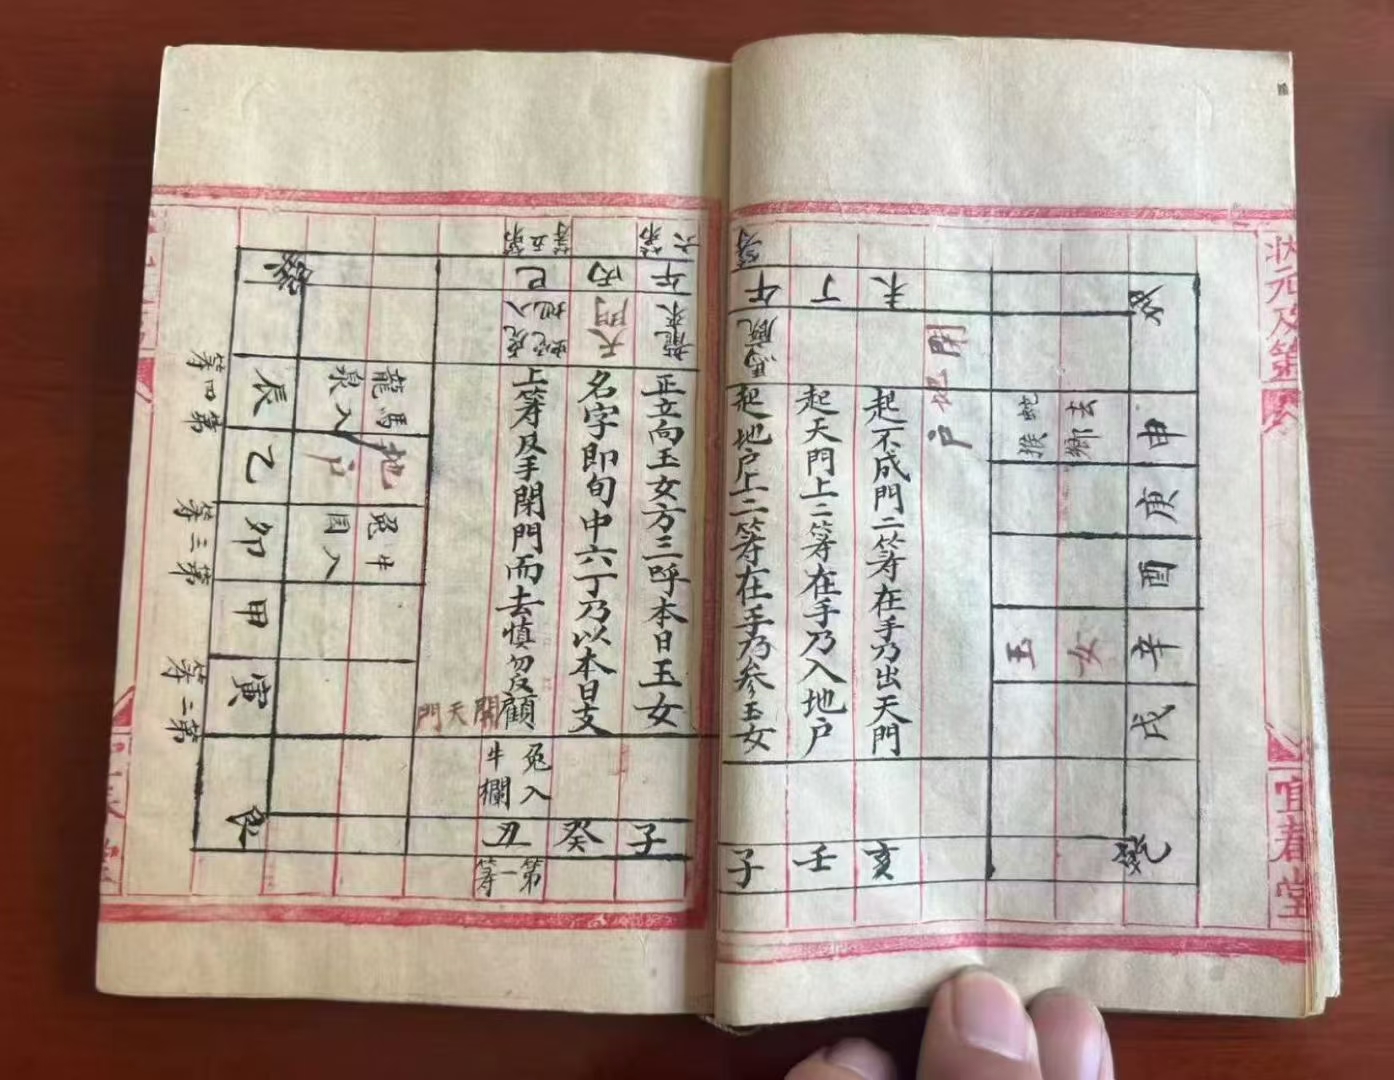 状元及第
宜春堂
申
庚
酉
辛
戌
乾
去鄉
蛇猴
玉女
開地户
未
起不成門二筭在手乃出天門
亥
丁
起天門上二筭在手乃入地户
壬
午
起地户上二筭在手乃参玉女
子
第六
午
龍來
正立向玉女方三呼本日玉女
子
丙
天門
名字即旬中六丁乃以本日支
癸
第五筭
巳
蛇入
虎
上筭反手閉門而去慎勿反顧
兔入
牛欄
丑
第一筭
開天門
龍馬
入泉
地户
兔牛
入園
辰
乙
卯
甲
寅
艮
第四筭
第三筭
第二筭